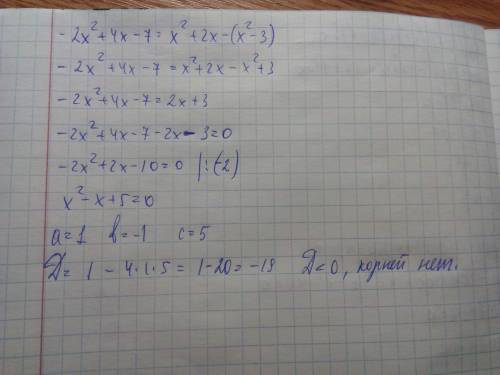 -2x²+4x-7=x²+2x-(x²-3)
-2x²+4x-7=x²+2x-x²+3
-2x²+4x-7=2x+3
-2x²+4x-7-2x-3=0
-2x²+2x-10=0 |:(-2)
x²-x+5=0
a=1 b=-1 c=5
D= 1 - 4·1·5= 1-20=-19 D<0, корней нет.